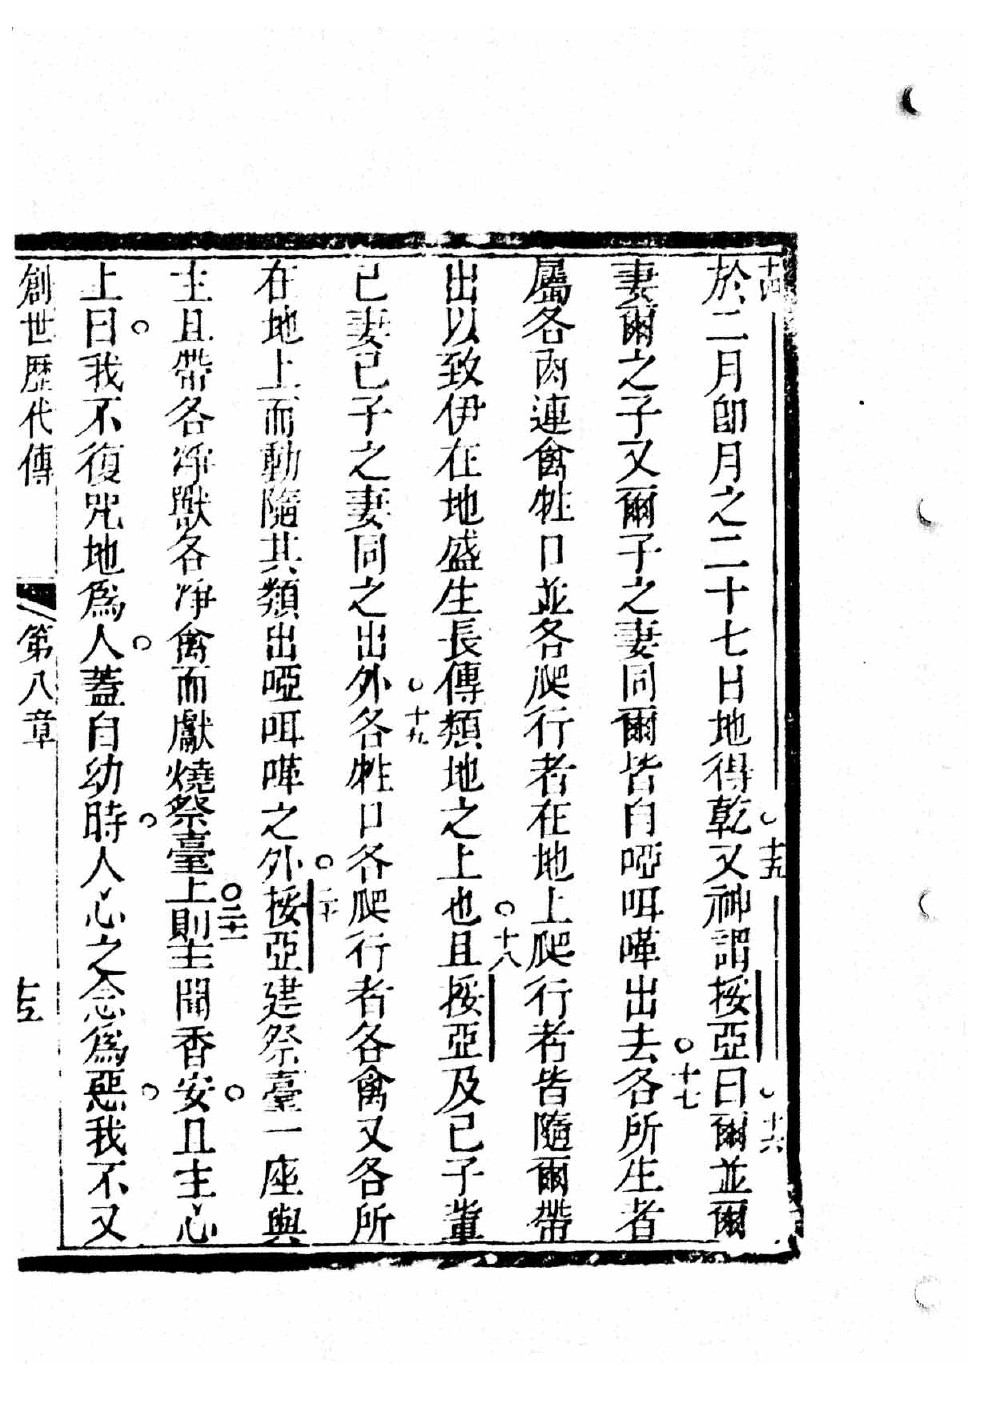 十四
於二月卽月之二十七日地得乾又神謂挼亞曰爾並爾
十五
十六
妻爾之子又爾子之妻同爾皆自啞咡嘩出去各所生者
十七
屬各肉連禽牲口並各爬行者在地上爬行者皆隨爾帶
出以致伊在地盛生長傳類地之上也且挼亞及已子輩
十八
已妻已子之妻同之出外各牲口各爬行者各禽又各所
十九
在地上而動隨其類出啞咡嘩之外挼亞建祭臺一座與
二十
主且帶各淨獸各淨禽而獻燒祭臺上則主聞香安且主心
二十一
上曰我不復咒地爲人蓋自幼時人心之念爲惡我不又
創世歷代傳 第八章